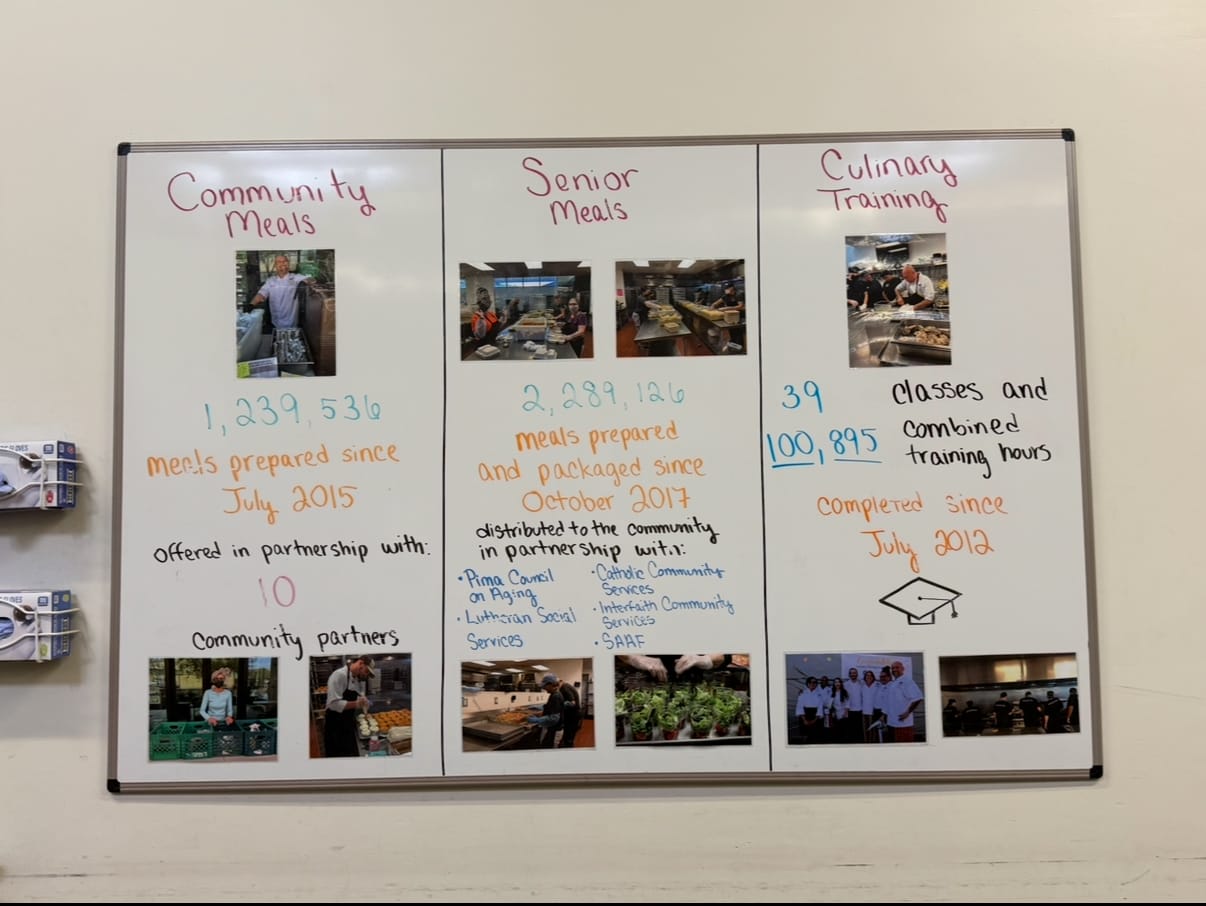 Community
Meals
1,239,536
meals prepared since
July 2015
offered in partnership with:
10
community partners
Senior
Meals
2,289,126
meals prepared
and packaged since
October 2017
distributed to the community
in partnership with:
• Pima Council
on Aging
• Lutheran Social
Services
• Catholic Community
Services
• Interfaith Community
Services
• SAAF
Culinary
Training
39 classes and
100,895 combined
training hours
completed since
July 2012
GLOVES
GLOVES